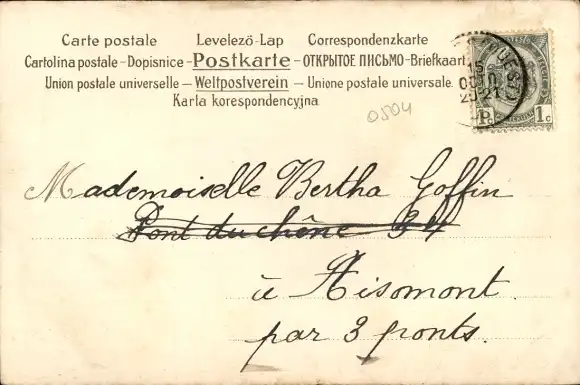 Carte postale Levelező-Lap Correspondenzkarte
Cartolina postale - Dopisnice - Postkarte - ОТКРЫТОЕ ПИСЬМО - Briefkaart
Union postale universelle - Weltpostverein - Unione postale universale.
Karta korespondencyjna
0504
Mademoiselle Bertha Goffin
Pont du chêne 34
à Aisomont.
par 3 ponts.
1c